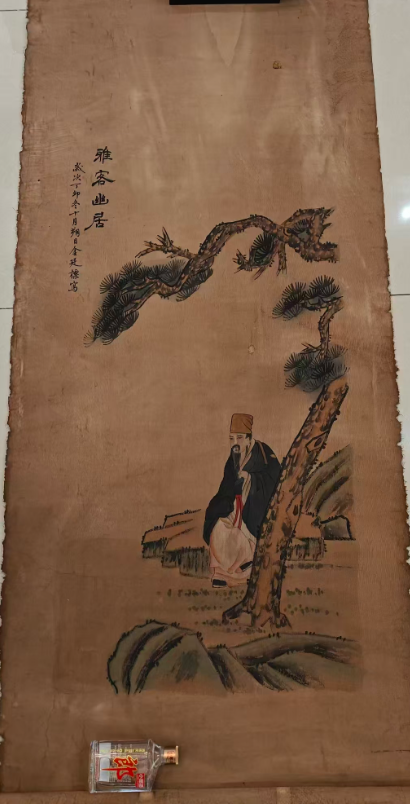 雅客幽居
歲次丁卯冬十月朔日金廷標寫
郎